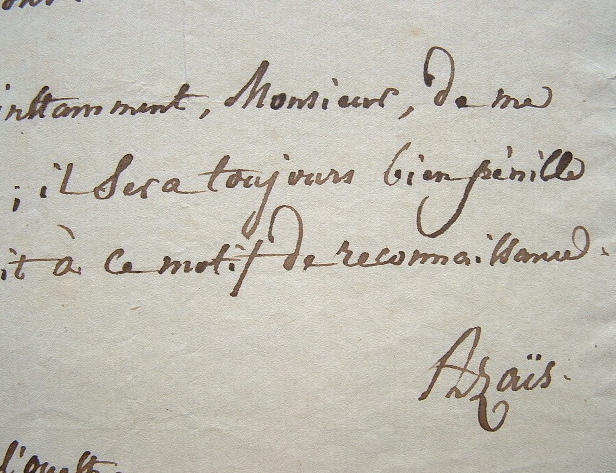 instamment, Monsieur, de me
; il sera toujours bien pénible
it à ce motif de reconnaissance.
Azaïs.
l'ouest.